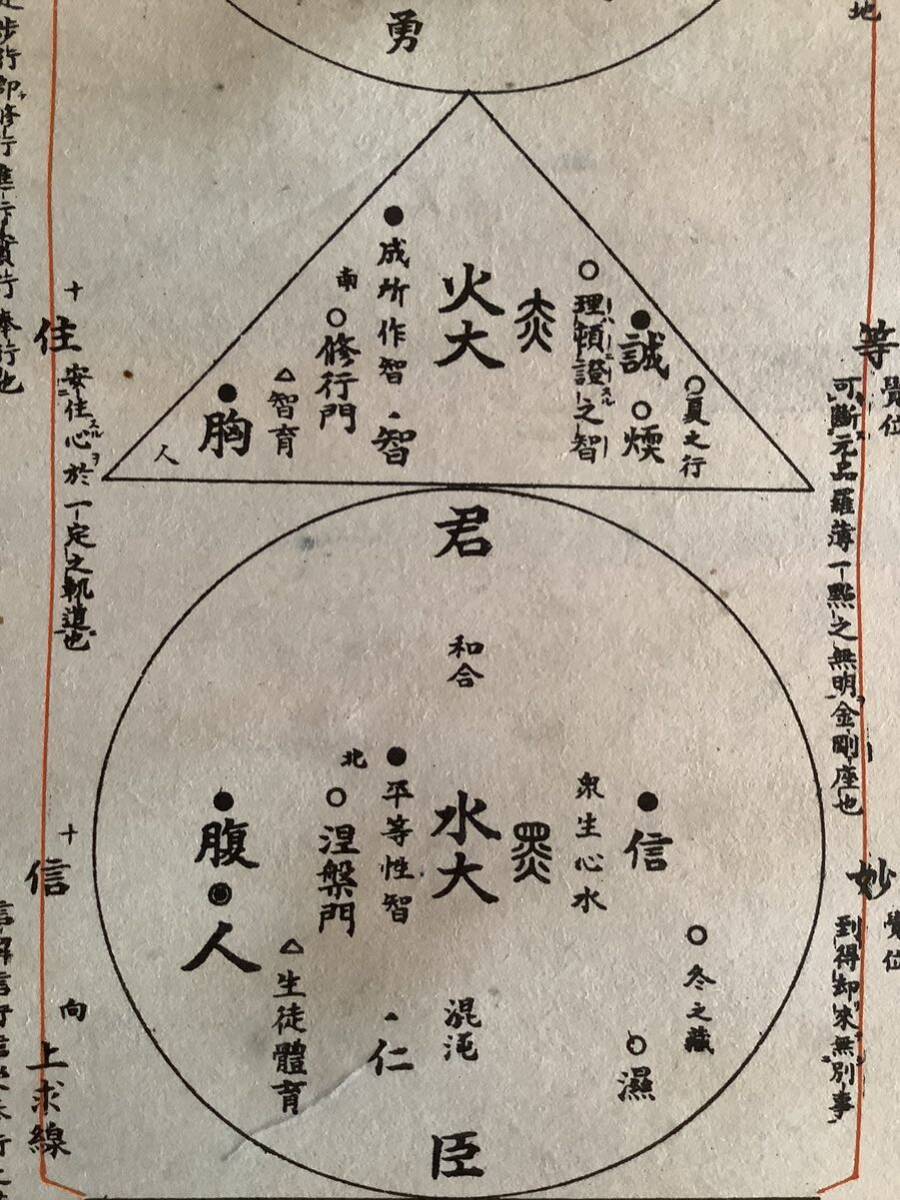 地
勇
等
覺位
可斷元品羅薄一點之無明金剛座也
夏之行
誠
煖
理頓證之智
火大
成所作智
智
南
修行門
智育
胸
人
十
住
安住心於一定之軌道也
步行即修行進行實行奉行也
君
和合
妙
覺位
到得却來無別事
信
冬之藏
濕
衆生心水
水大
混沌
平等性智
仁
北
涅槃門
生徒體育
腹
人
十
信
向
上求線
臣